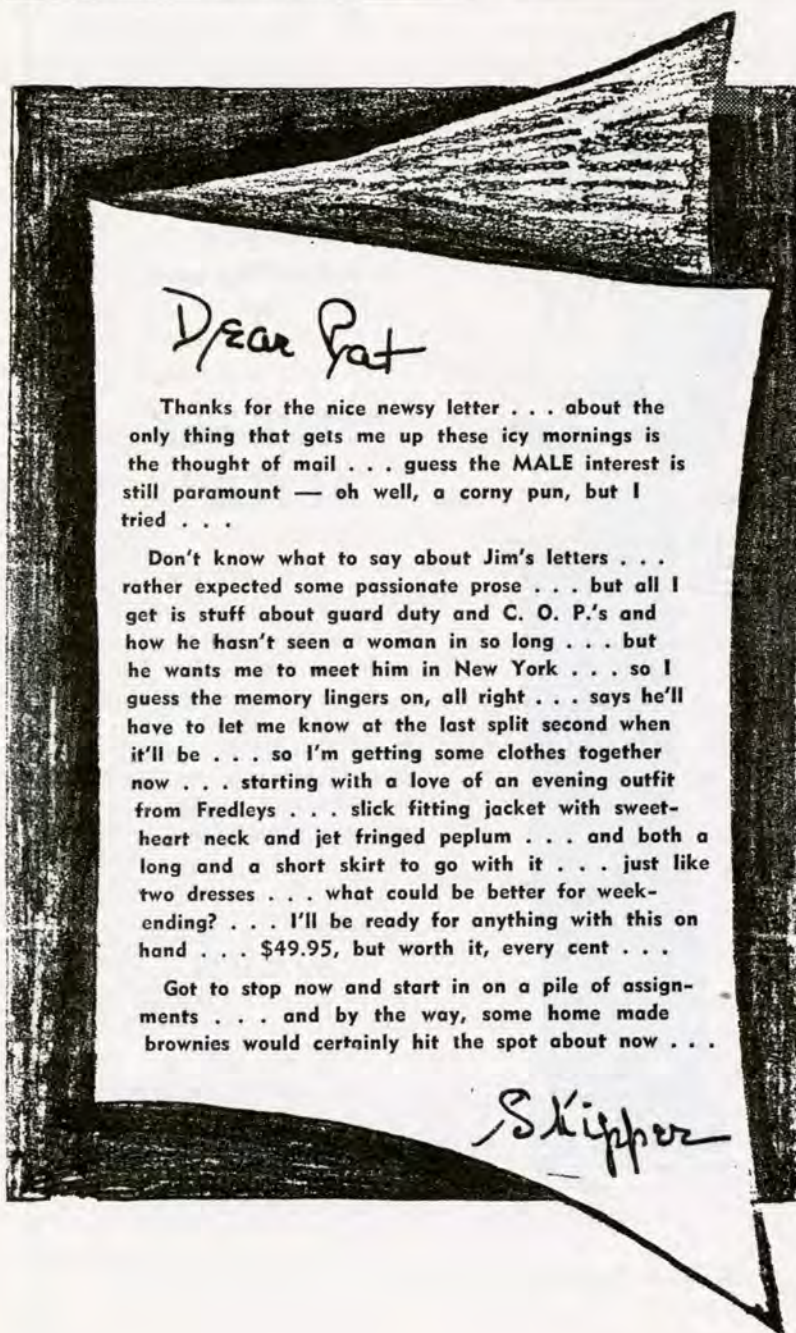 Dear Pat
Thanks for the nice newsy letter . . . about the
only thing that gets me up these icy mornings is
the thought of mail . . . guess the MALE interest is
still paramount — oh well, a corny pun, but I
tried . . .
Don't know what to say about Jim's letters . . .
rather expected some passionate prose . . . but all I
get is stuff about guard duty and C. O. P.'s and
how he hasn't seen a woman in so long . . . but
he wants me to meet him in New York . . . so I
guess the memory lingers on, all right . . . says he'll
have to let me know at the last split second when
it'll be . . . so I'm getting some clothes together
now . . . starting with a love of an evening outfit
from Fredleys . . . slick fitting jacket with sweet-
heart neck and jet fringed peplum . . . and both a
long and a short skirt to go with it . . . just like
two dresses . . . what could be better for week-
ending? . . . I'll be ready for anything with this on
hand . . . $49.95, but worth it, every cent . . .
Got to stop now and start in on a pile of assign-
ments . . . and by the way, some home made
brownies would certainly hit the spot about now . . .
Skipper